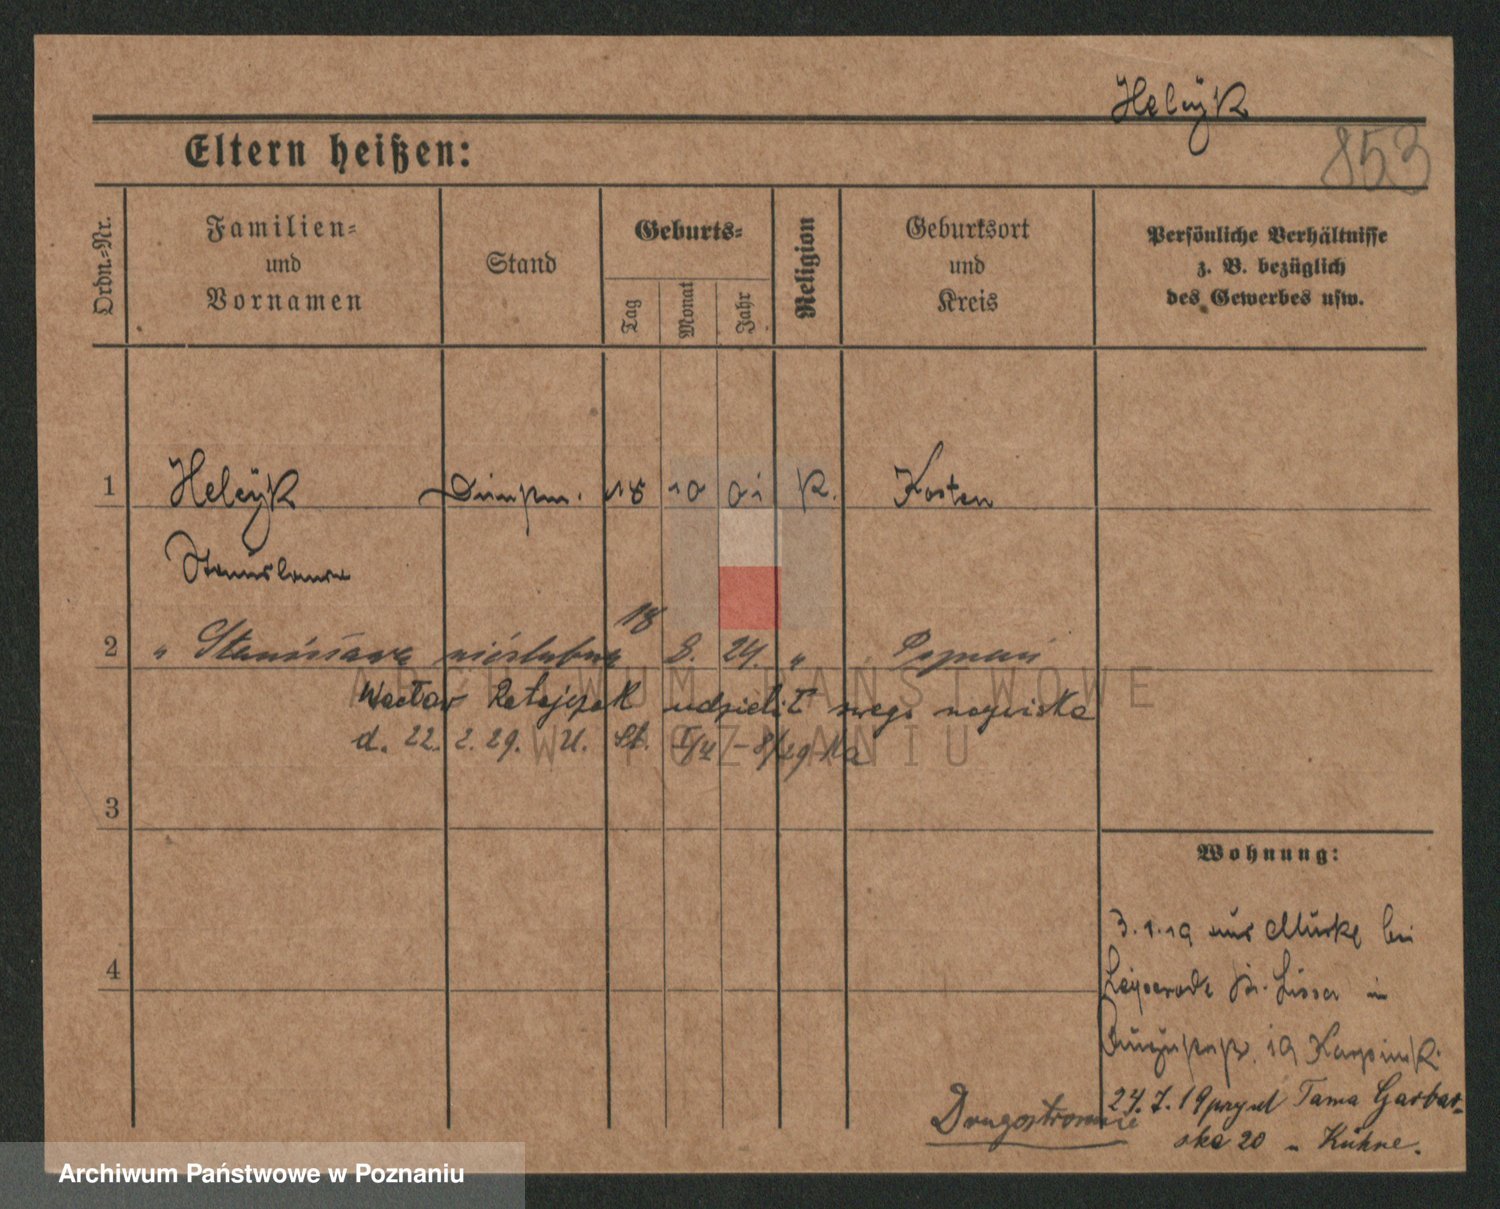 Helcyk
853
Eltern heißen:
Ordn.-Nr.
Familien-
und
Vornamen
Stand
Geburts-
Tag
Monat
Jahr
Religion
Geburtsort
und
Kreis
Persönliche Verhältnisse
z. B. bezüglich
des Gewerbes usw.
1 Helcyk 18 10 01 K. Kosten
Stanislawa
2 " Stanisława nieślubna 18 8. 24. " Poznań
Wacław Ratajczak udzielił swego nazwiska
d. 22. 2. 29. U. St.
3
4
Wohnung:
3. 1. 19 aus bei
Kr. Lissa in
19
24. 7. 19 przy ul Tama Garbar-
ska 20 " Kühne.
Drugostronnie
ARCHIWUM PAŃSTWOWE
W POZNANIU
Archiwum Państwowe w Poznaniu